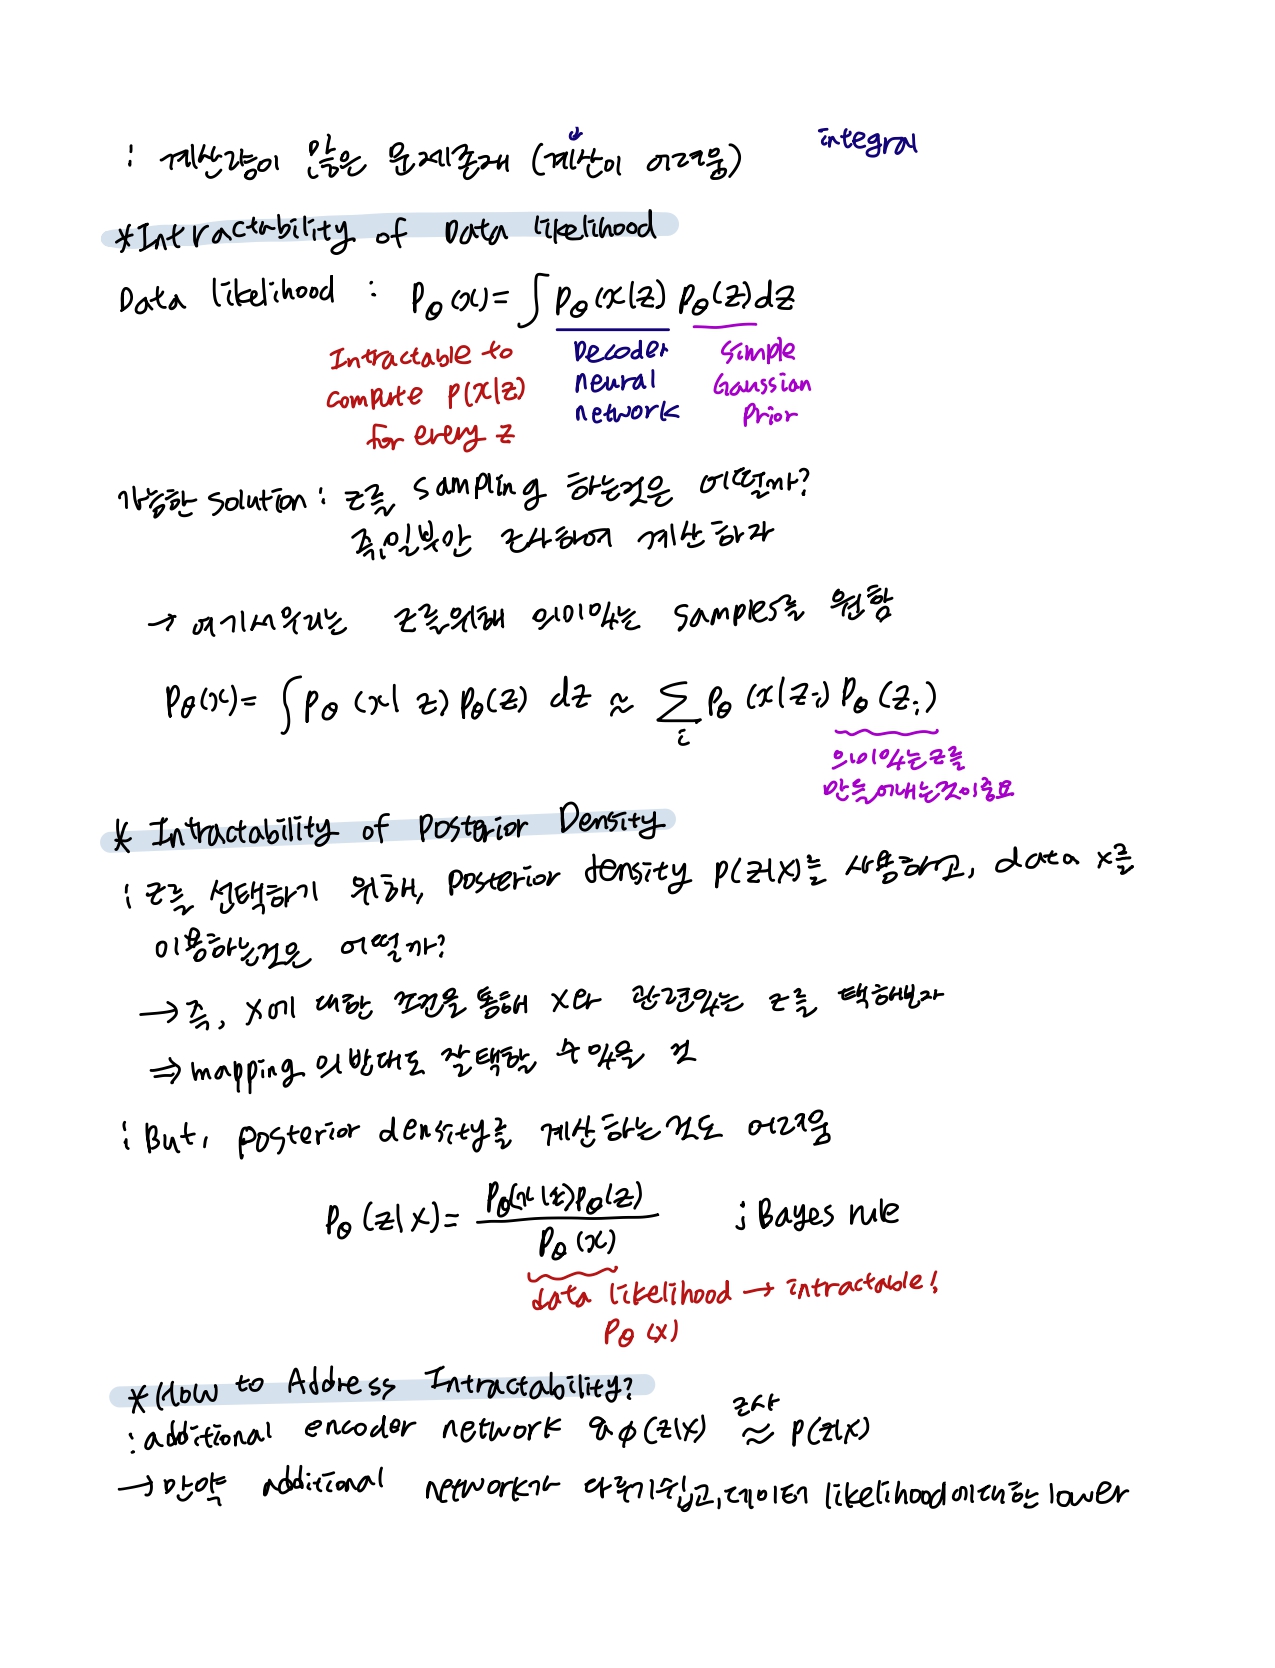 integral
: 계산량이 많은 문제존재 (계산이 어려움)
*Intractability of Data likelihood
Data likelihood : Pθ(x)= ∫Pθ(x|z) Pθ(z)dz
Intractable to compute P(x|z) for every z
Decoder neural network
Simple Gaussian Prior
가능한 solution: z를 sampling 하는것은 어떨까?
즉,일부만 근사하여 계산하자
→ 여기서우리는 z를위해 의미있는 samples를 원함
Pθ(x)= ∫Pθ(x|z)Pθ(z) dz ≈ ∑i Pθ(x|zi)Pθ(zi)
의미있는z를
만들어내는것이중요
* Intractability of Posterior Density
: z를 선택하기 위해, posterior density P(z|x)를 사용하고, data x를
이용하는것은 어떨까?
→ 즉, x에 대한 조건을 통해 x와 관련있는 z를 택해보자
⇒ mapping의반대도 잘택할 수 있을 것
: But, posterior density를 계산하는 것도 어려움
Pθ(z|x)= Pθ(x|z)Pθ(z) / Pθ(x) ; Bayes rule
data likelihood → intractable!
Pθ(x)
*How to Address Intractability?
근사
: additional encoder network qφ(z|x) ≈ P(z|x)
→ 만약 additional network가 다루기쉽고, 데이터 likelihood에대한 lower